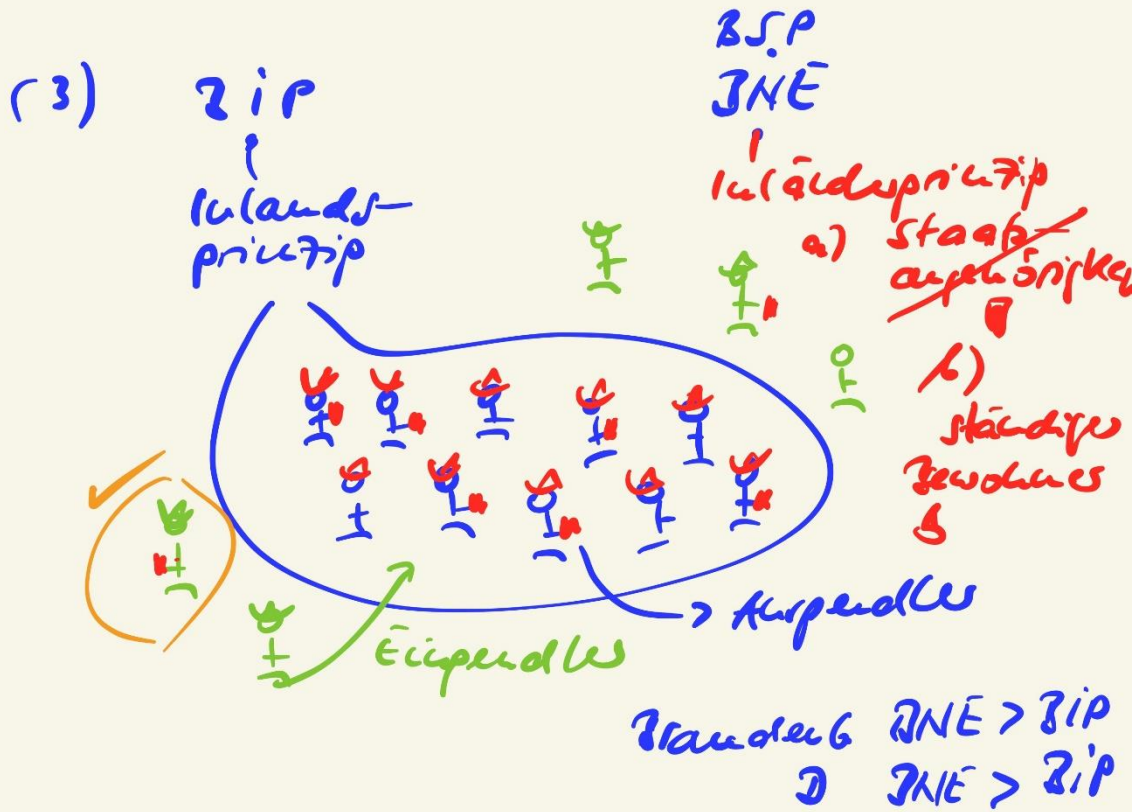 (3) BiP
BSP
BNE
Inlands-
prinzip
Inländerprinzip
a) Staats-
angehörigkeit
b)
ständiger
Bewohner
Auspendler
Einpendler
Brandenb BNE > BiP
D BNE > BiP